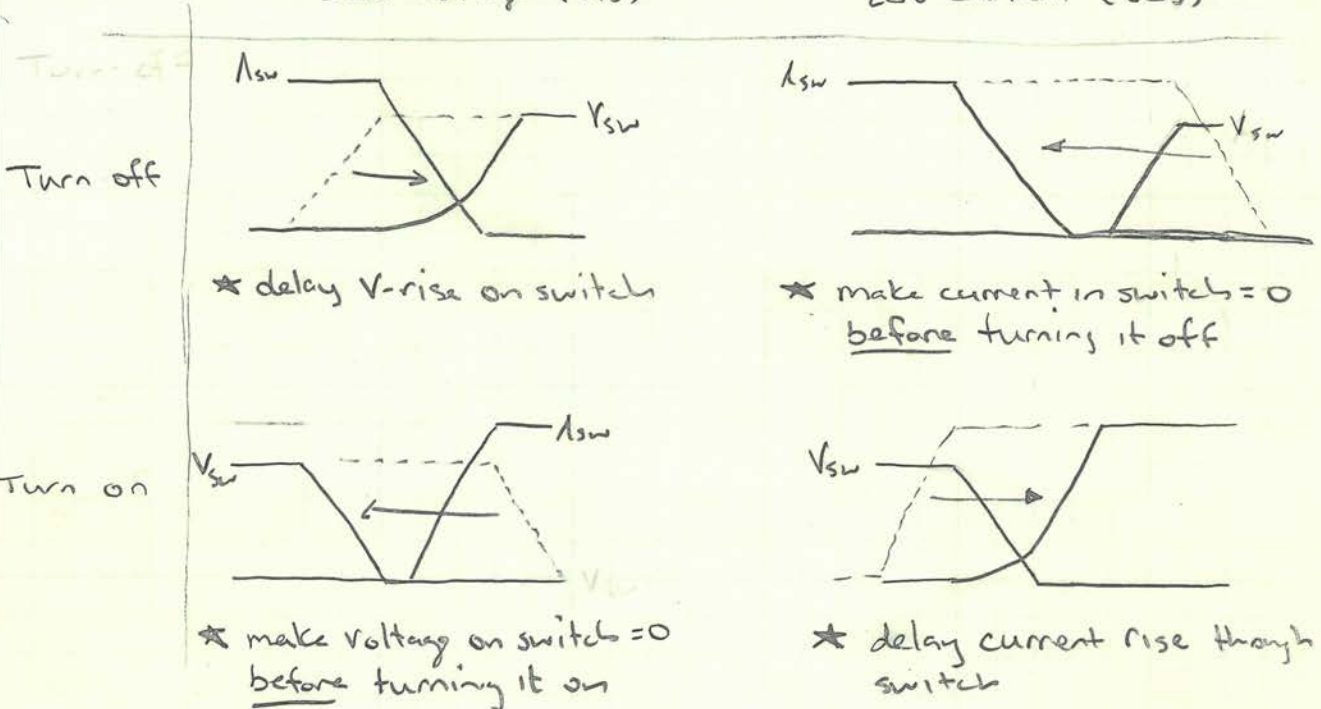 Turn off
isw
Vsw
isw
Vsw
Turn off
★ delay V-rise on switch
★ make current in switch = 0
before turning it off
Turn on
Vsw
isw
Vsw
★ make voltage on switch = 0
before turning it on
★ delay current rise through
switch